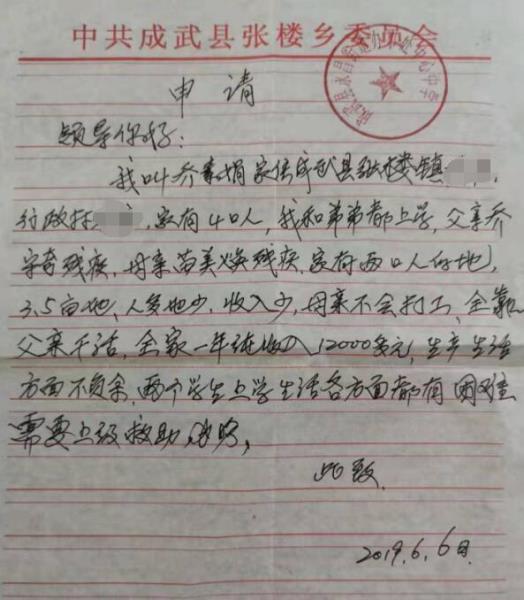 中共成武县张楼乡委员会
申请
领导你好:
我叫乔素娟家住成武县张楼镇
行政村 , 家有4口人, 我和弟弟都上学, 父亲乔
守奇残疾, 母亲苗美焕残疾, 家有两口人的地,
3.5亩地, 人多地少, 收入少, 母亲不会打工, 全靠
父亲干活, 全家一年纯收入12000多元, 生产生活
方面不负余, 两个学生上学生活各方面都有困难
需要上级救助,
此致
2019.6.6日